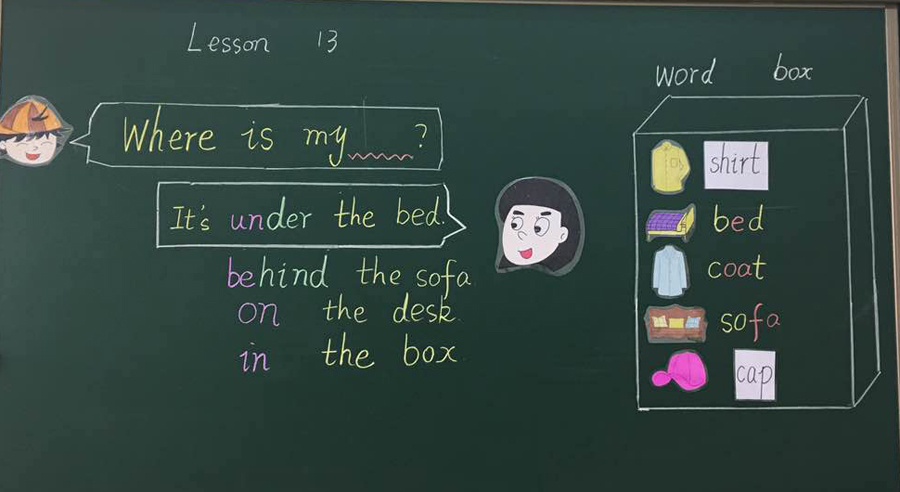 Lesson 13
Where is my ?
It's under the bed.
behind the sofa
on the desk.
in the box.
word box
shirt
bed
coat
sofa
cap